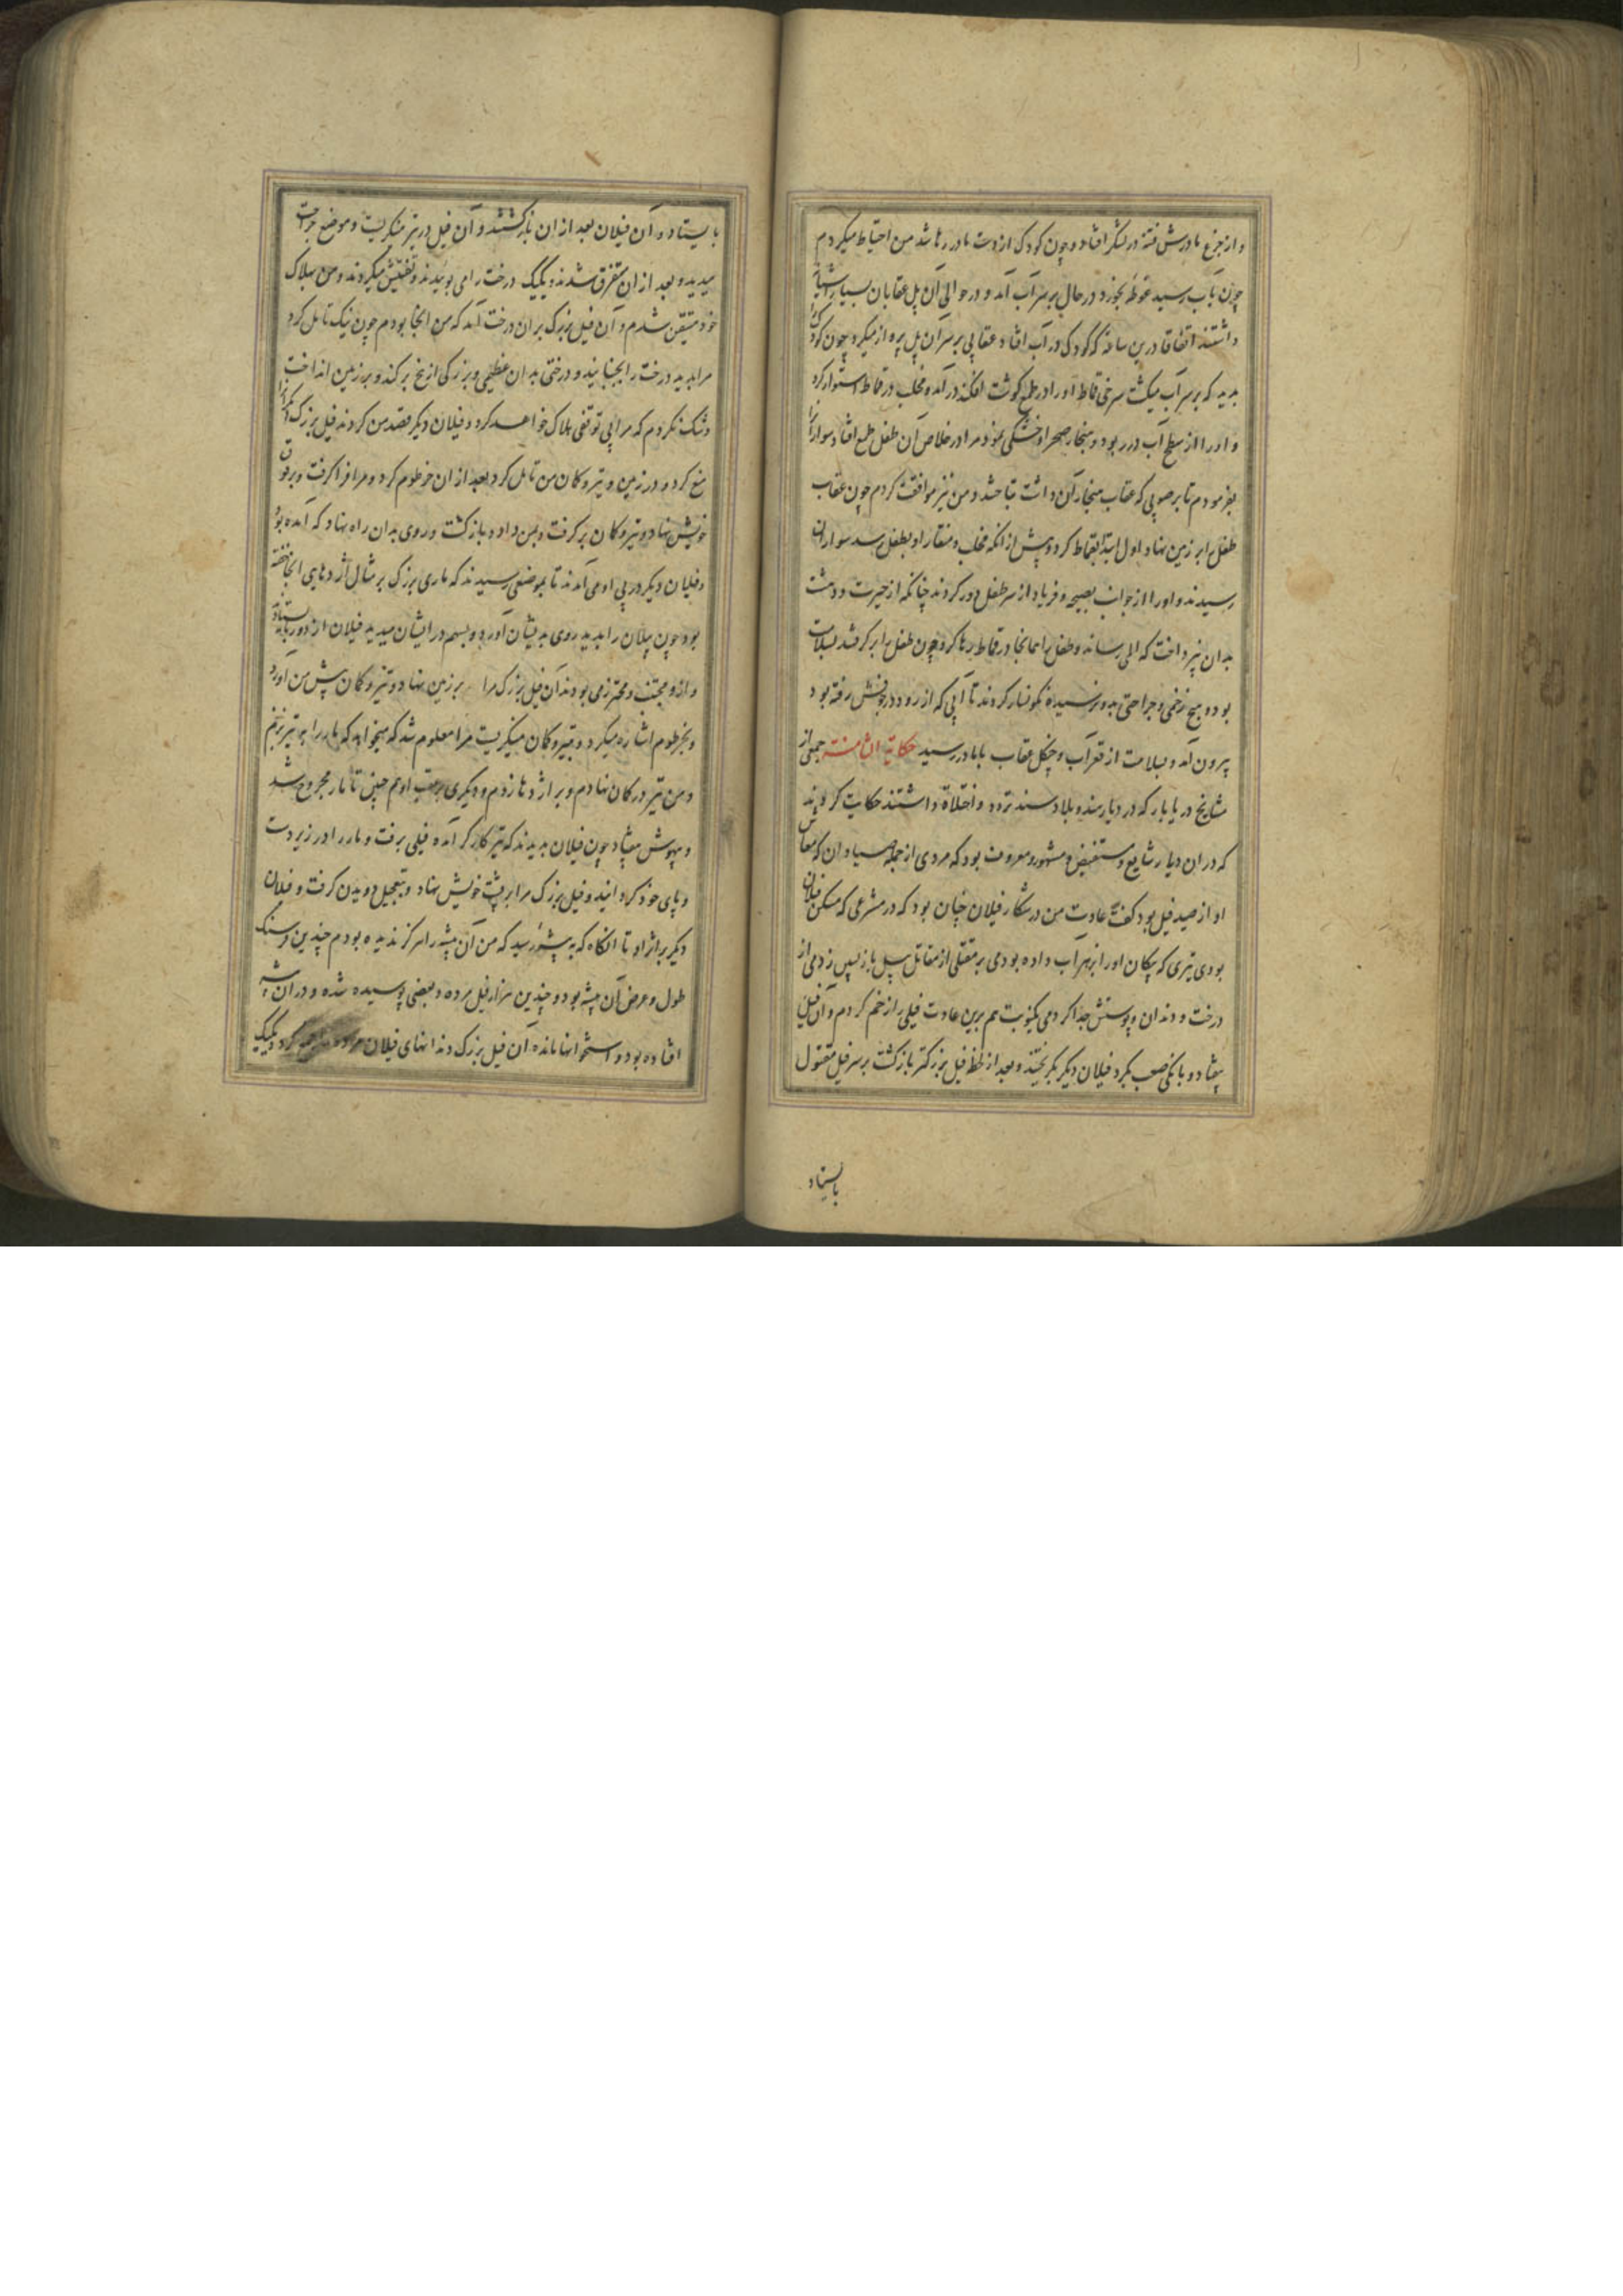 و از جزع مادرش فتنه در لشکر افتاد و چون کودک از دست مادر رها شد من احتیاط میکردم
چون بآب رسید غوطه بخورد و در حال بر سر آب آمد و در حوالی آن پل عقابان بسیار آشیانه
داشتند اتفاقا درین ساعت که کودک در آب افتاد عقابی بر سر آن پل پرواز میکرد چون کودک را
بدید که بر سر آب میگشت سرخی قماط او را در طمع گوشت افکند درآمد و مخلب در قماط استوار کرد
و او را از سطح آب در ربود و بهنجار صحرا و خشکی نمود مرا در خلاص آن طفل طمع افتاد سواران را
بفرمودم تا بر صوبی که عقاب هنجار آن داشت بتاختند و من نیز موافقت کردم چون عقاب
طفل را بر زمین نهاد و اول ابتدا بقماط کرد و پیش از آنکه مخلب و منقار او بطفل رسد سواران
رسیدند و او را از جوانب بصیحه و فریاد از سر طفل دور کردند چنانکه از حیرت و دهشت
بدان نپرداخت که المی رساند و طفل را همانجا در قماط رها کرد و چون طفل را برگرفتند بسلامت
بود و هیچ زخمی و جراحتی بدو نرسیده نگونسار کردند تا آبی که از رود در جوفش رفته بود
بیرون آمد و بسلامت از قعر آب و چنگل عقاب با مادر رسید حکایة الثامنة جمعی از
مشایخ دریابار که در دیار هند و بلاد سند تردد و اختلاط داشتند حکایت کردند
که در آن دیار شایع و مستفیض و مشهور و معروف بود که مردی از جمله صیادان که معاش
او از صید فیل بود گفت عادت من در شکار فیلان چنان بود که در مشرعی که مسکن فیلان
بودی تیری که پیکان او را بزهر آب داده بودمی بر مقتلی از مقاتل پیل بازپسین زدمی از
درخت و دندان و پوستش جدا کردمی یکنوبت هم برین عادت فیلی را زخم کردم و آن فیل
بیفتاد و بانکی صعب بکرد فیلان دیگر بگریختند و بعد از لحظه فیل بزرگتر بازگشت بر سر فیل مقتول
بایستاد
بایستاد و آن فیلان بعد از آن بازگشتند و آن فیل در تیر مینگریست و موضع جراحت
میدید و بعد از آن متفرق شدند و یکیک درخت را می بوئیدند و تفتیش میکردند و من بهلاک
خود متیقن شدم و آن فیل بزرگ بر آن درخت آمد که من آنجا بودم چون نیک تامل کرد
مرا بدید درخت را بجنبانید و درختی بدان عظیمی و بزرگی از بیخ برکند و بر زمین انداخت
و شک نکردم که مرا بی توقفی هلاک خواهد کرد و فیلان دیگر قصد من کردند فیل بزرگ
منع کرد و در زمین و تیر و کمان من تامل کرد بعد از آن خرطوم کرد و مرا فرا گرفت و بر فوق
خویش نهاد و تیر و کمان برگرفت و بمن داد و بازگشت و روی بدان راه نهاد که آمده بود
و فیلان دیگر در پی او می آمدند تا بموضعی رسیدند که ماری بزرگ بر مثال اژدهایی آنجا خفته
بود چون پیلان را بدید روی بدیشان آورد و بسم در ایشان میدمید فیلان از دور بایستادند
و از و مجتنب و محترز می بودند آن فیل بزرگ مرا بر زمین نهاد و تیر و کمان پیش من آورد
و بخرطوم اشاره میکرد و بتیر و کمان مینگریست مرا معلوم شد که میخواهد که مار را بتیر بزنم
و من تیر در کمان نهادم و بر اژدها زدم و دیگری بر عقب او هم چنین تا مار مجروح شد
و بیهوش بیفتاد چون فیلان بدیدند که تیر کارگر آمده فیلی برفت و مار را در زیر دست
و پای خود گردانید و فیل بزرگ مرا بر پشت خویش نهاد و بتعجیل دویدن گرفت و فیلان
دیگر بر اثر او تا آنگاه که به بیشه رسید که من آن بیشه را هرگز ندیده بودم چندین فرسنگ
طول و عرض آن بیشه بود و چندین هزار فیل مرده و بعضی پوسیده شده و در آن بیشه
افتاده بود و استخوانها مانده آن فیل بزرگ دندانهای فیلان مرده جمع کرد و یکیک